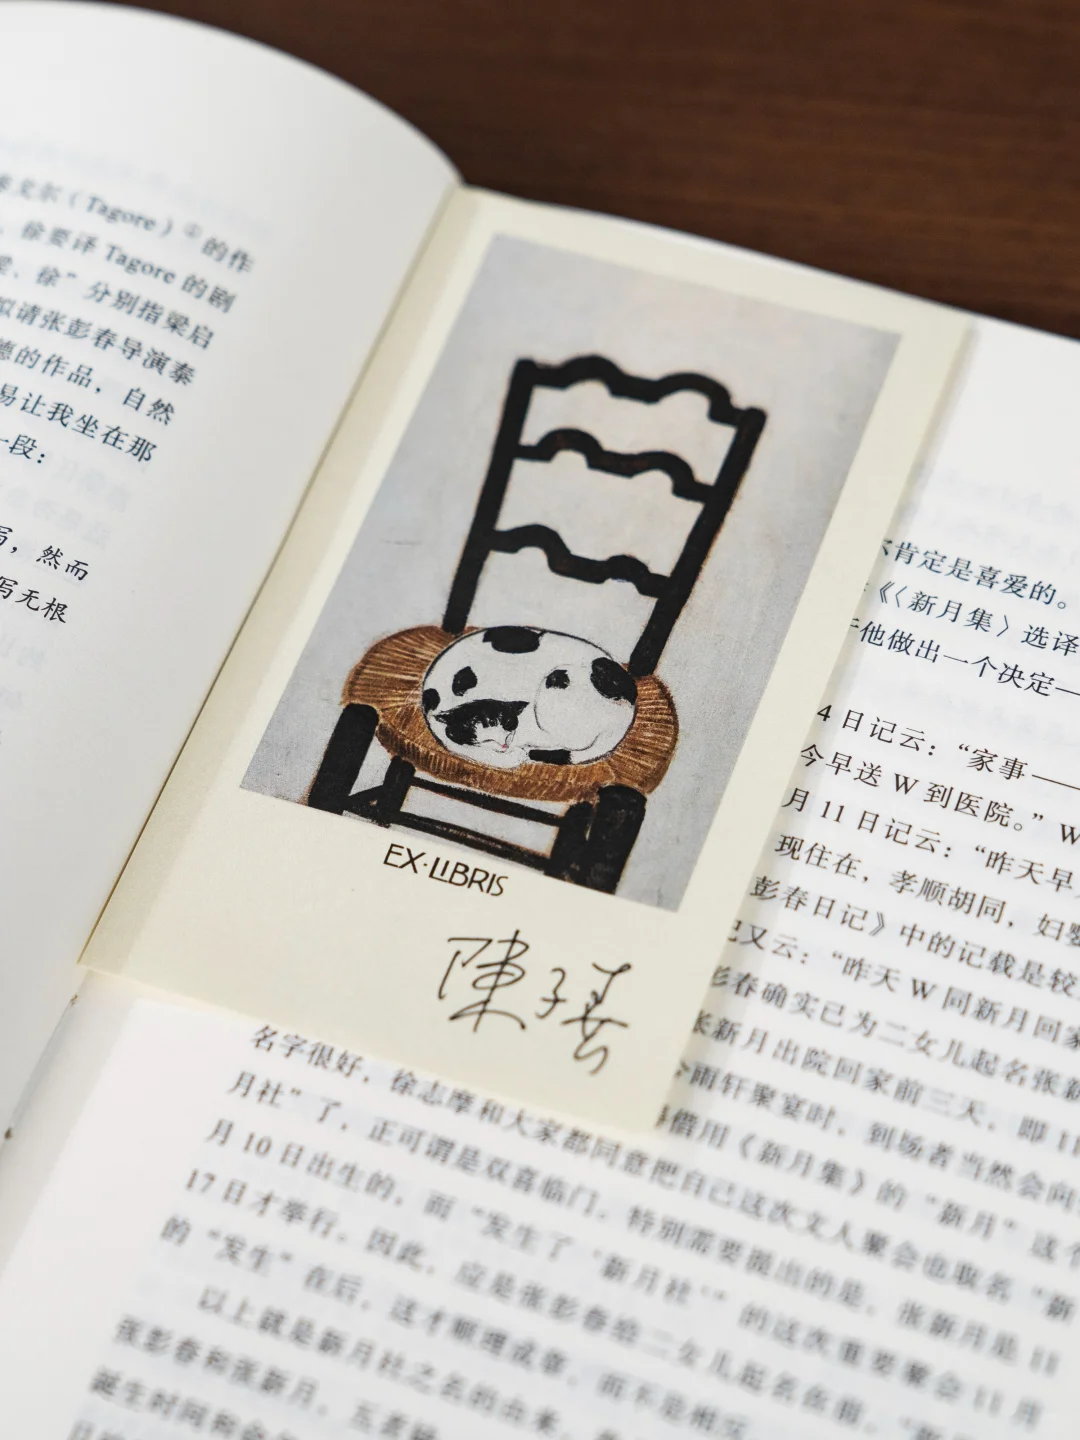 泰戈尔（Tagore）①的作
，徐要译 Tagore 的剧
、徐”分别指梁启
拟请张彭春导演泰
德的作品，自然
易让我坐在那
一段：
写，然而
写无根
EX·LIBRIS
陳子善
肯定是喜爱的。
《〈新月集〉选译
他做出一个决定—
4 日记云：“家事——
今早送 W 到医院。” W
月 11 日记云：“昨天早
现住在，孝顺胡同，妇婴
彭春日记》中的记载是较
记又云：“昨天 W 同新月回家
彭春确实已为二女儿起名张新
张新月出院回家前三天，即 11
今雨轩聚宴时，到场者当然会向
名字很好，徐志摩和大家都同意把自己这次文人聚会也取名“新
借用《新月集》的“新月”这个
月社”了，正可谓是双喜临门。特别需要提出的是，张新月是 11
月 10 日出生的，而“发生了‘新月社’”的这次重要聚会 11 月
17 日才举行。因此，应是张彭春给二女儿起名在前，“新
的“发生”在后，这才顺理成章，而不是相反
以上就是新月社之名的由来，
张彭春和张新月，五者
诞生时间和